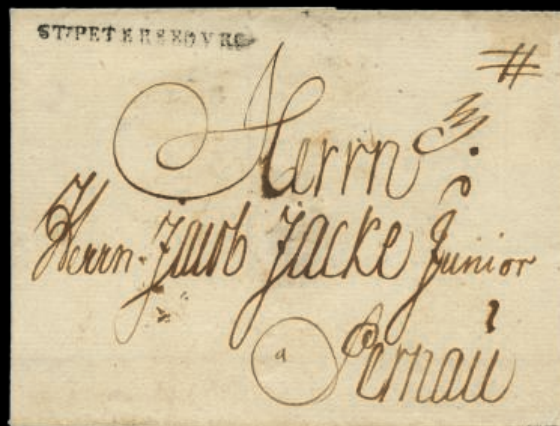 ST.PETERSBOVRG
Herrn
Herrn Jacob Jacke Junior
a Pernau